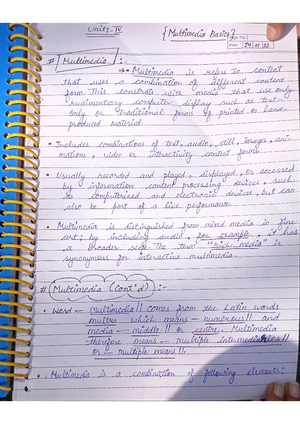 Unit:- IV
{Multimedia Basics}
Date
# Multimedia :-
→ • Multimedia is refers to content
that uses a combination of different content
form. This constrats with media that use only
rudimentary computer display such as text-
only or traditional forms of printed or hand
produced material.
• Includes combinations of text, audio, still, images, ani-
mations, video or interactivity content forms.
• Usually recorded and played, displayed, or accessed
by information content processing devices, such
as computerized and electronic devices, but can
also be part of a live performance.
• Multimedia is distinguished from mixed media in fine
art; by including audio, for example, it has
a broader scope. The term "rich media" is
synonymous for interactive multimedia.
# (Multimedia (Cont'd)) :-
• word — multimedia!! comes from the Latin words
multus which means — numerous!! and
media — middle!! or centre. Multimedia
therefore means — multiple intermediaries!!
or — multiple means!!.
• Multimedia is a combination of following elements: